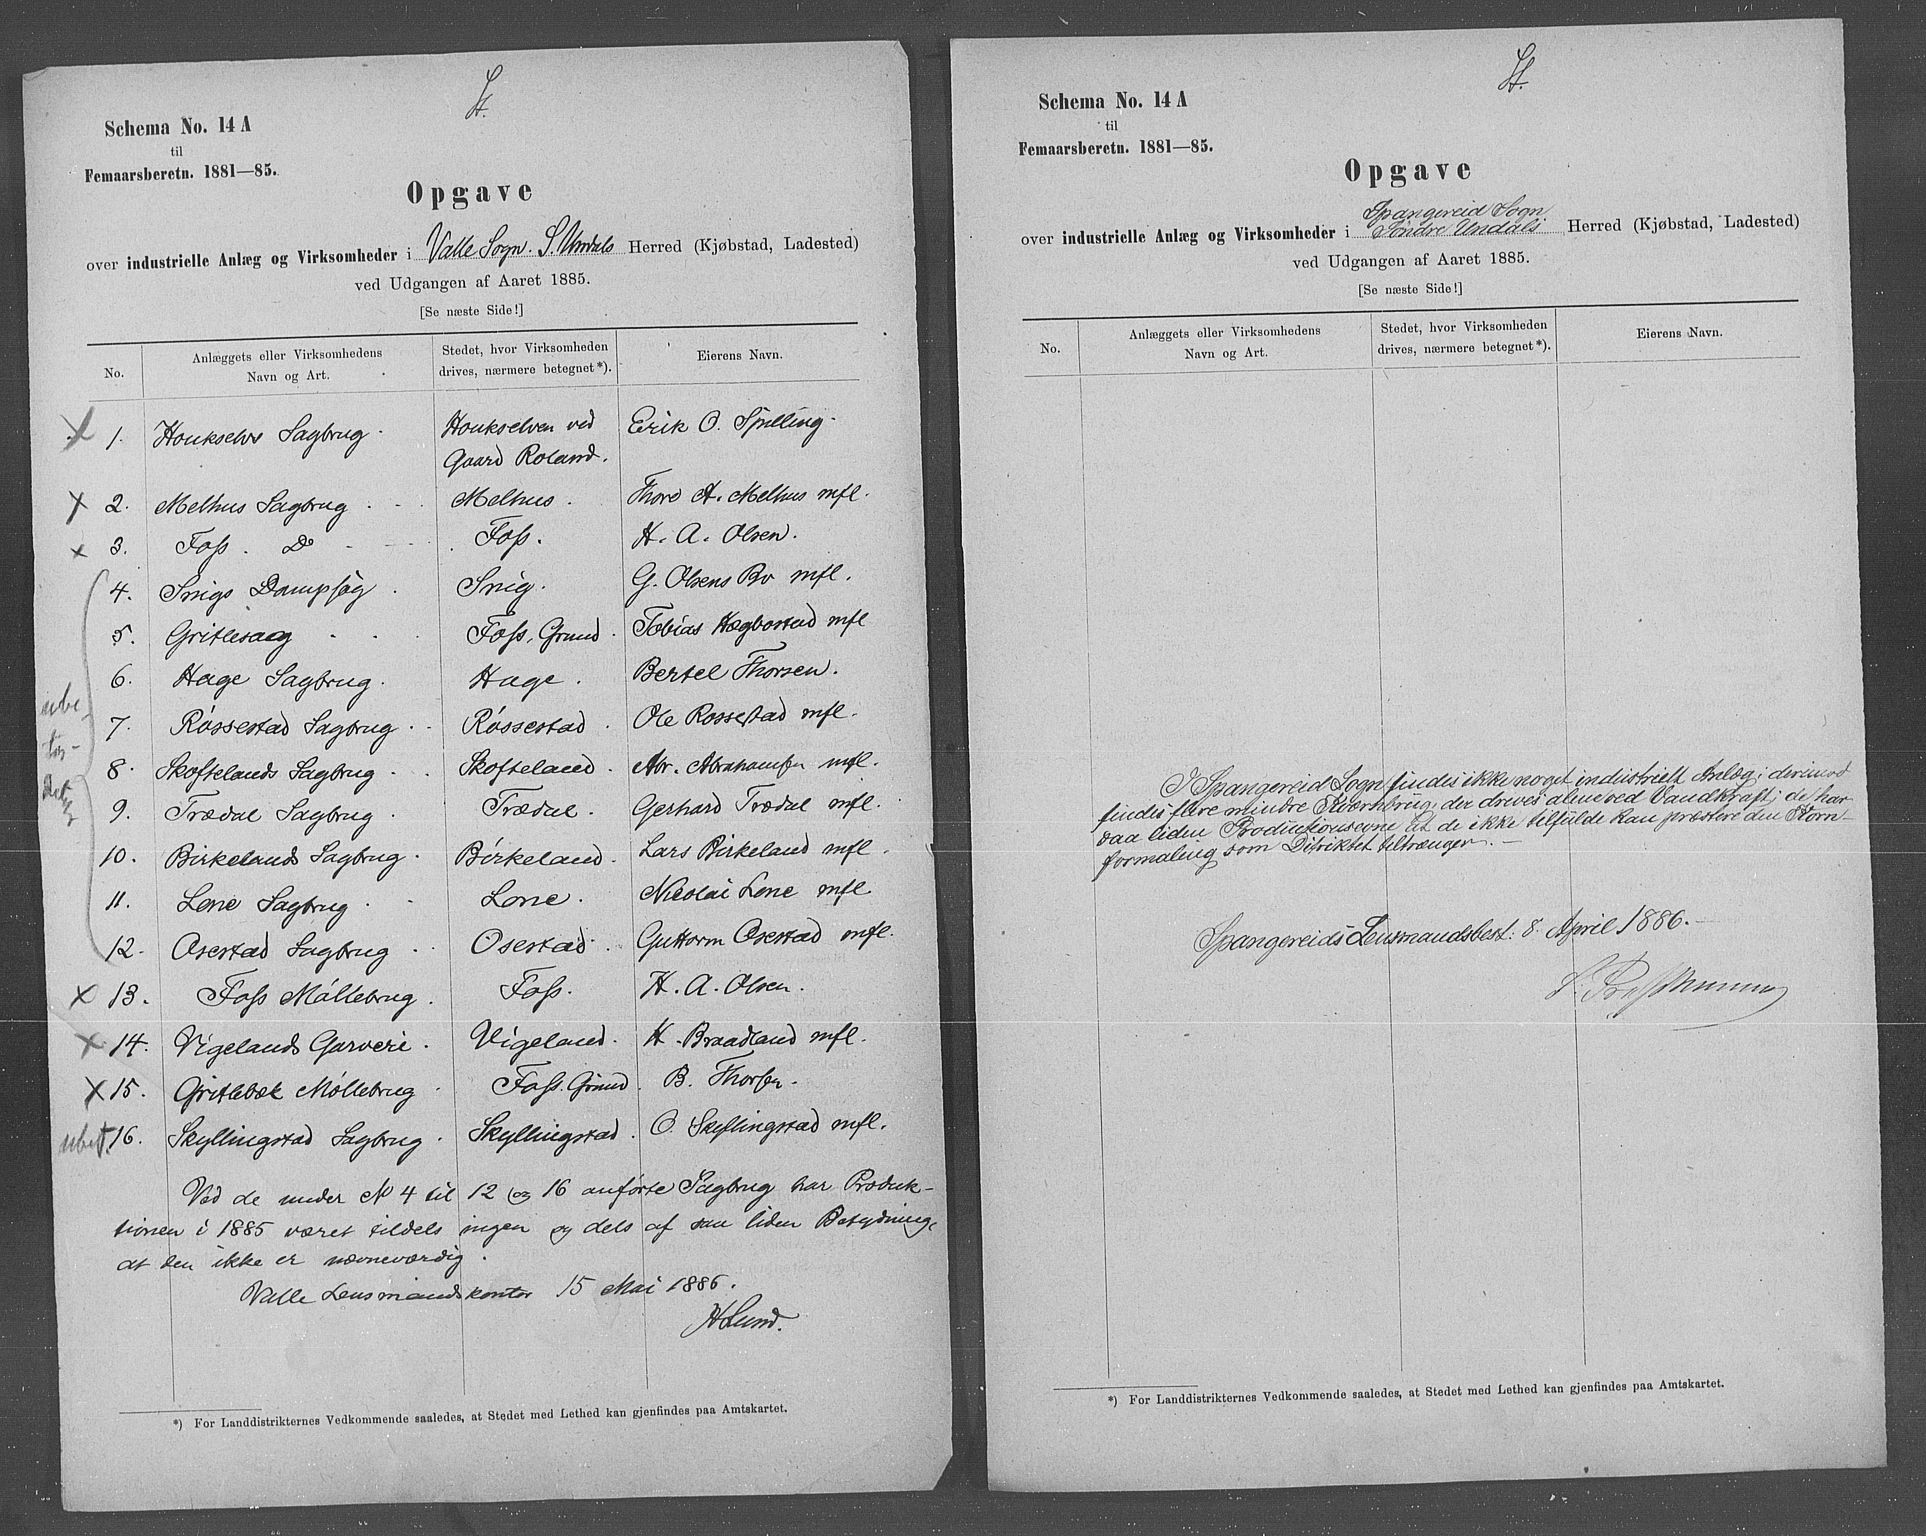 St.
Schema No. 14 A
til
Femaarsberetn. 1881—85.
Opgave
over industrielle Anlæg og Virksomheder i Valle Sogn. S. Undals Herred (Kjøbstad, Ladested)
ved Udgangen af Aaret 1885.
[Se næste Side!]
No. Anlæggets eller Virksomhedens Navn og Art. Stedet, hvor Virksomheden drives, nærmere betegnet*). Eierens Navn.
1. Houkselvs Sagbrug. Houkselven ved Erik O. Spilling.
Gaard Roland.
2. Melhus Sagbrug . . Melhus. Thore A. Melhus mfl.
3. Foss. Do Foss. H. A. Olsen.
4. Snigs Dampsag . Snig. G. Olsens Bo mfl.
5. Gritlesaag . . . Foss. Grund. Tobias Hægbostad mfl
6. Hage Sagbrug. Hage. Bertel Thorsen.
7. Røssestad Sagbrug. Røssestad. Ole Rossestad mfl.
8. Skoftelands Sagbrug. Skofteland. Abr. Abrahamsen mfl.
9. Trædal Sagbrug. Trædal. Gerhard Trædal mfl.
10. Birkelands Sagbrug. Birkeland. Lars Birkeland mfl.
11. Lone Sagbrug. Lone. Nicolai Lone mfl
12. Osestad Sagbrug. Osestad. Guttorm Osestad mfl.
13. Foss Møllebrug. Foss. H. A. Olsen.
14. Vigelands Garveri. Vigeland. H. Braadland mfl.
15. Gritlebæk Møllebrug. Foss. Grund. B. Thorsen.
ubet. 16. Skyllingstad Sagbrug. Skyllingstad. O Skyllingstad mfl.
Ved de under No 4 til 12 og 16 anførte Sagbrug har Produk-
tionen i 1885 været tildels ingen og dels af saa liden Betydning,
at den ikke er nævneværdig.
Valle Lensmandskontor 15 Mai 1886.
H Lund.
*) For Landdistrikternes Vedkommende saaledes, at Stedet med Lethed kan gjenfindes paa Amtskartet.
St.
Schema No. 14 A
til
Femaarsberetn. 1881—85.
Opgave
Spangereid Sogn
over industrielle Anlæg og Virksomheder i Søndre Undals Herred (Kjøbstad, Ladested)
ved Udgangen af Aaret 1885.
[Se næste Side!]
No. Anlæggets eller Virksomhedens Navn og Art. Stedet, hvor Virksomheden drives, nærmere betegnet*). Eierens Navn.
I Spangereid Sogn findes ikke noget industrielt Anlæg; derimod
findes flere mindre Kværnbrug, der drives alene ved Vandkraft; de har
saa liden Productionsevne at de ikke tilfulde kan præstere den Korn-
formaling som Ditriktet tiltrænger.—
Spangereids Lensmandsbest: 8. April 1886.
*) For Landdistrikternes Vedkommende saaledes, at Stedet med Lethed kan gjenfindes paa Amtskartet.